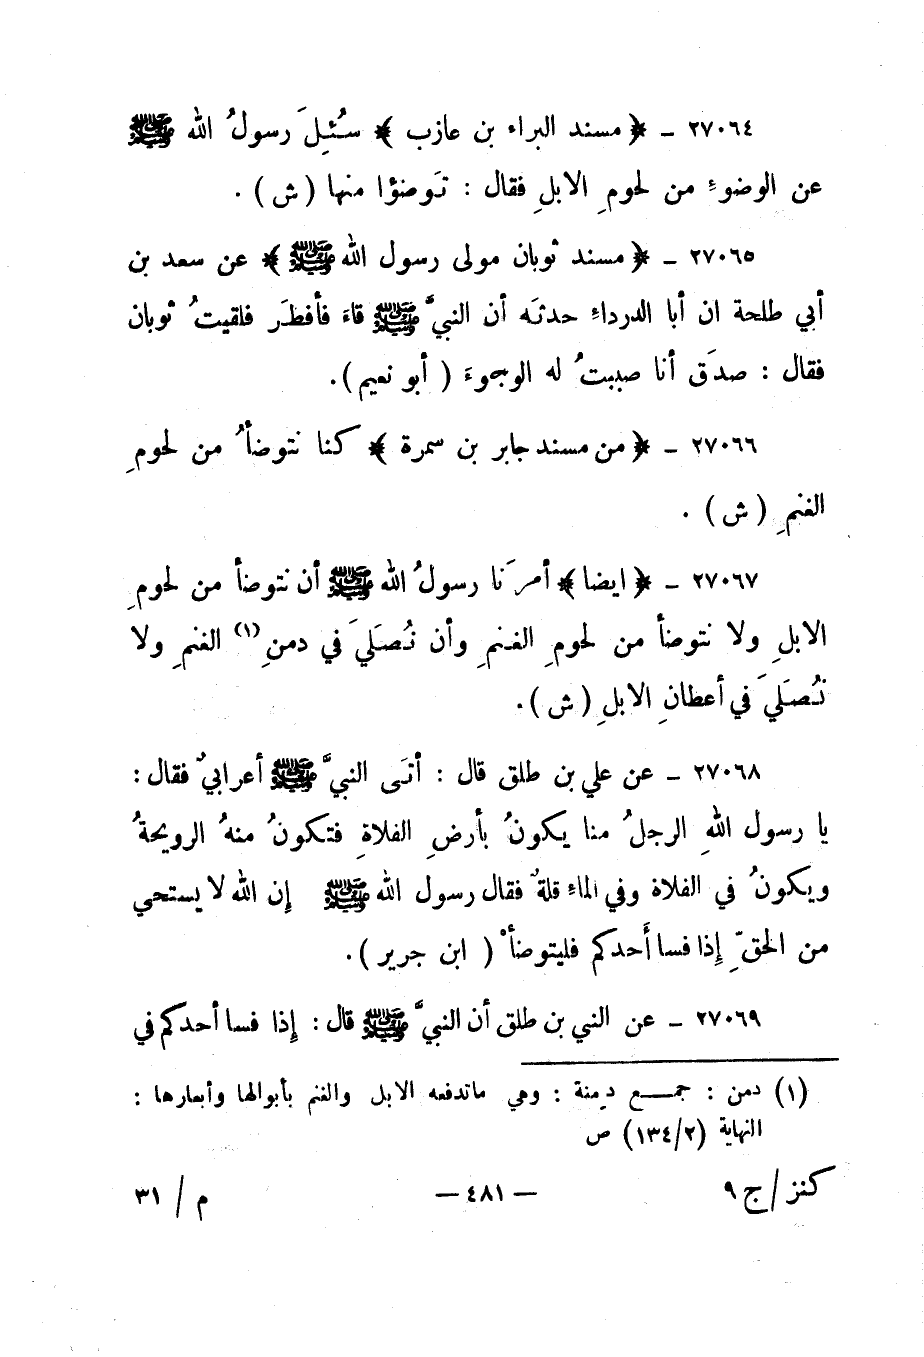 ٢٧٠٦٤ ـ ﴿ مسند البراء بن عازب ﴾ سُئِلَ رسولُ الله ﷺ
عن الوضوءِ من لحومِ الابلِ فقال : تَوضئوا منها ( ش ) .
٢٧٠٦٥ ـ ﴿ مسند ثوبان مولى رسول الله ﷺ ﴾ عن سعد بن
أبي طلحة ان أبا الدرداءِ حدثَه أن النبيَّ ﷺ قاءَ فأفطَر فلقيتُ ثوبان
فقال : صدَق أنا صببتُ له الوجوءَ ( أبو نعيم ).
٢٧٠٦٦ ـ ﴿ من مسند جابر بن سمرة ﴾ كنا نتوضأُ من لحومِ
الغنمِ ( ش ) .
٢٧٠٦٧ ـ ﴿ ايضا ﴾ أمرَنا رسولُ الله ﷺ أن نتوضأ من لحومِ
الابلِ ولا نتوضأ من لحومِ الغنمِ وأن نُصَلِّيَ في دمنِ (١) الغنمِ ولا
نُصَلِّيَ في أعطانِ الابلِ ( ش ).
٢٧٠٦٨ ـ عن علي بن طلق قال : أتَى النبيَّ ﷺ أعرابيٌ فقال :
يا رسول اللهِ الرجلُ منا يكونُ بأرضِ الفلاةِ فتكونُ منهُ الرويحةُ
ويكونُ في الفلاة وفي الماءِ قلةٌ فقال رسول الله ﷺ إن الله لا يستحي
من الحقِّ إذا فسا أَحدكم فليتوضأْ ( ابن جرير ).
٢٧٠٦٩ ـ عن النبي بن طلق أن النبيَّ ﷺ قال : إذا فسا أحدكم في
(١) دمن : جمع دمنة : وهي ماتدفعه الابل والغنم بأبوالها وأبعارها :
النهاية (١٣٤/٢) ص
كنز / ج ٩ — ٤٨١ — م / ٣١